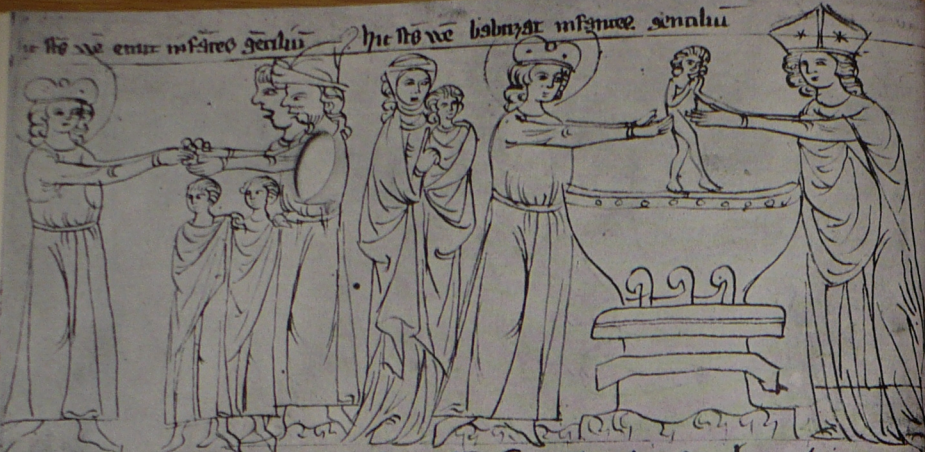 ic sc̄s wē emit infātes gētiliū hic sc̄s wē babtizat infantes gentiliū